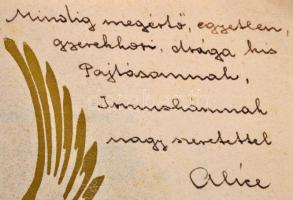 Mindig megértő, egyetlen,
gyerekkori, drága kis
Pajtásomnak,
Irmuskámnak
nagy szeretettel
Alice